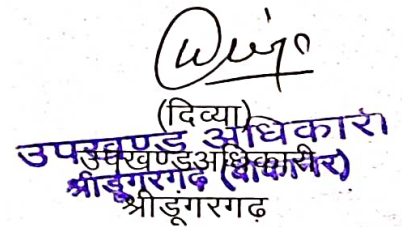 (दिव्या)
उपखण्ड अधिकारी
उपखण्डअधिकारी
श्रीडूंगरगढ़ (बीकानेर)
श्रीडूंगरगढ़